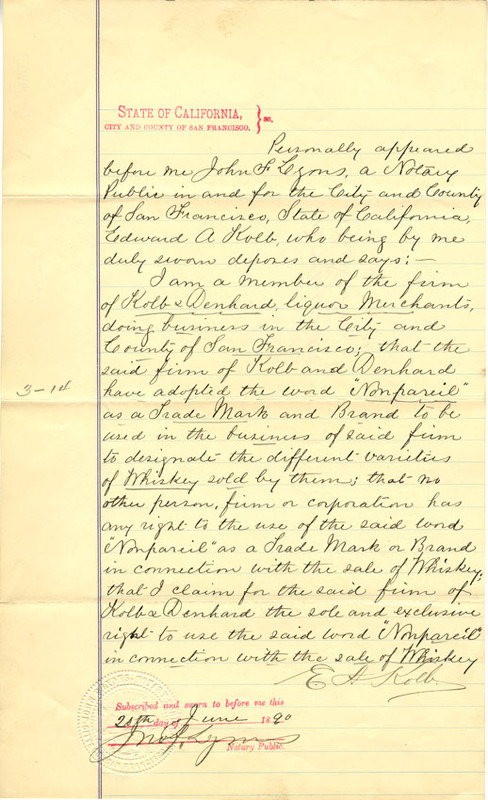 STATE OF CALIFORNIA,
CITY AND COUNTY OF SAN FRANCISCO. } ss.
Personally appeared
before me John F Lyons, a Notary
Public in and for the City and County
of San Francisco, State of California,
Edward A Kolb, who being by me
duly sworn deposes and says:—
I am a member of the firm
of Kolb & Denhard, liquor Merchants,
doing business in the City and
County of San Francisco; that the
said firm of Kolb and Denhard
3-14
have adopted the word "Nonpareil"
as a Trade Mark and Brand to be
used in the business of said firm
to designate the different varieties
of Whiskey sold by them; that no
other person, firm or corporation has
any right to the use of the said word
"Nonpareil" as a Trade Mark or Brand
in connection with the sale of Whiskey;
that I claim for the said firm of
Kolb & Denhard the sole and exclusive
right to use the said word "Nonpareil"
in connection with the sale of Whiskey
E A Kolb
Subscribed and sworn to before me this
day of June 1890
Jno F Lyons
Notary Public.